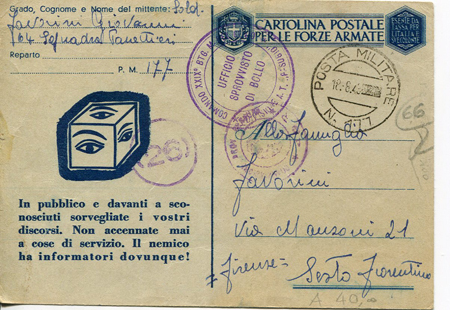 Grado, Cognome e Nome del mittente: Sold.
Favorini Giovanni
64 Squadra Panettieri
Reparto
P. M. 177
CARTOLINA POSTALE
PER LE FORZE ARMATE
UFFICIO
SPROVVISTO
DI BOLLO
COMANDO XXIX° BTG.
POSTA MILITARE
N. 177
66
26
Alla Famiglia
Favorini
Via Manzoni 21
=Firenze= Sesto Fiorentino
In pubblico e davanti a sco-
nosciuti sorvegliate i vostri
discorsi. Non accennate mai
a cose di servizio. Il nemico
ha informatori dovunque!
A 40,-